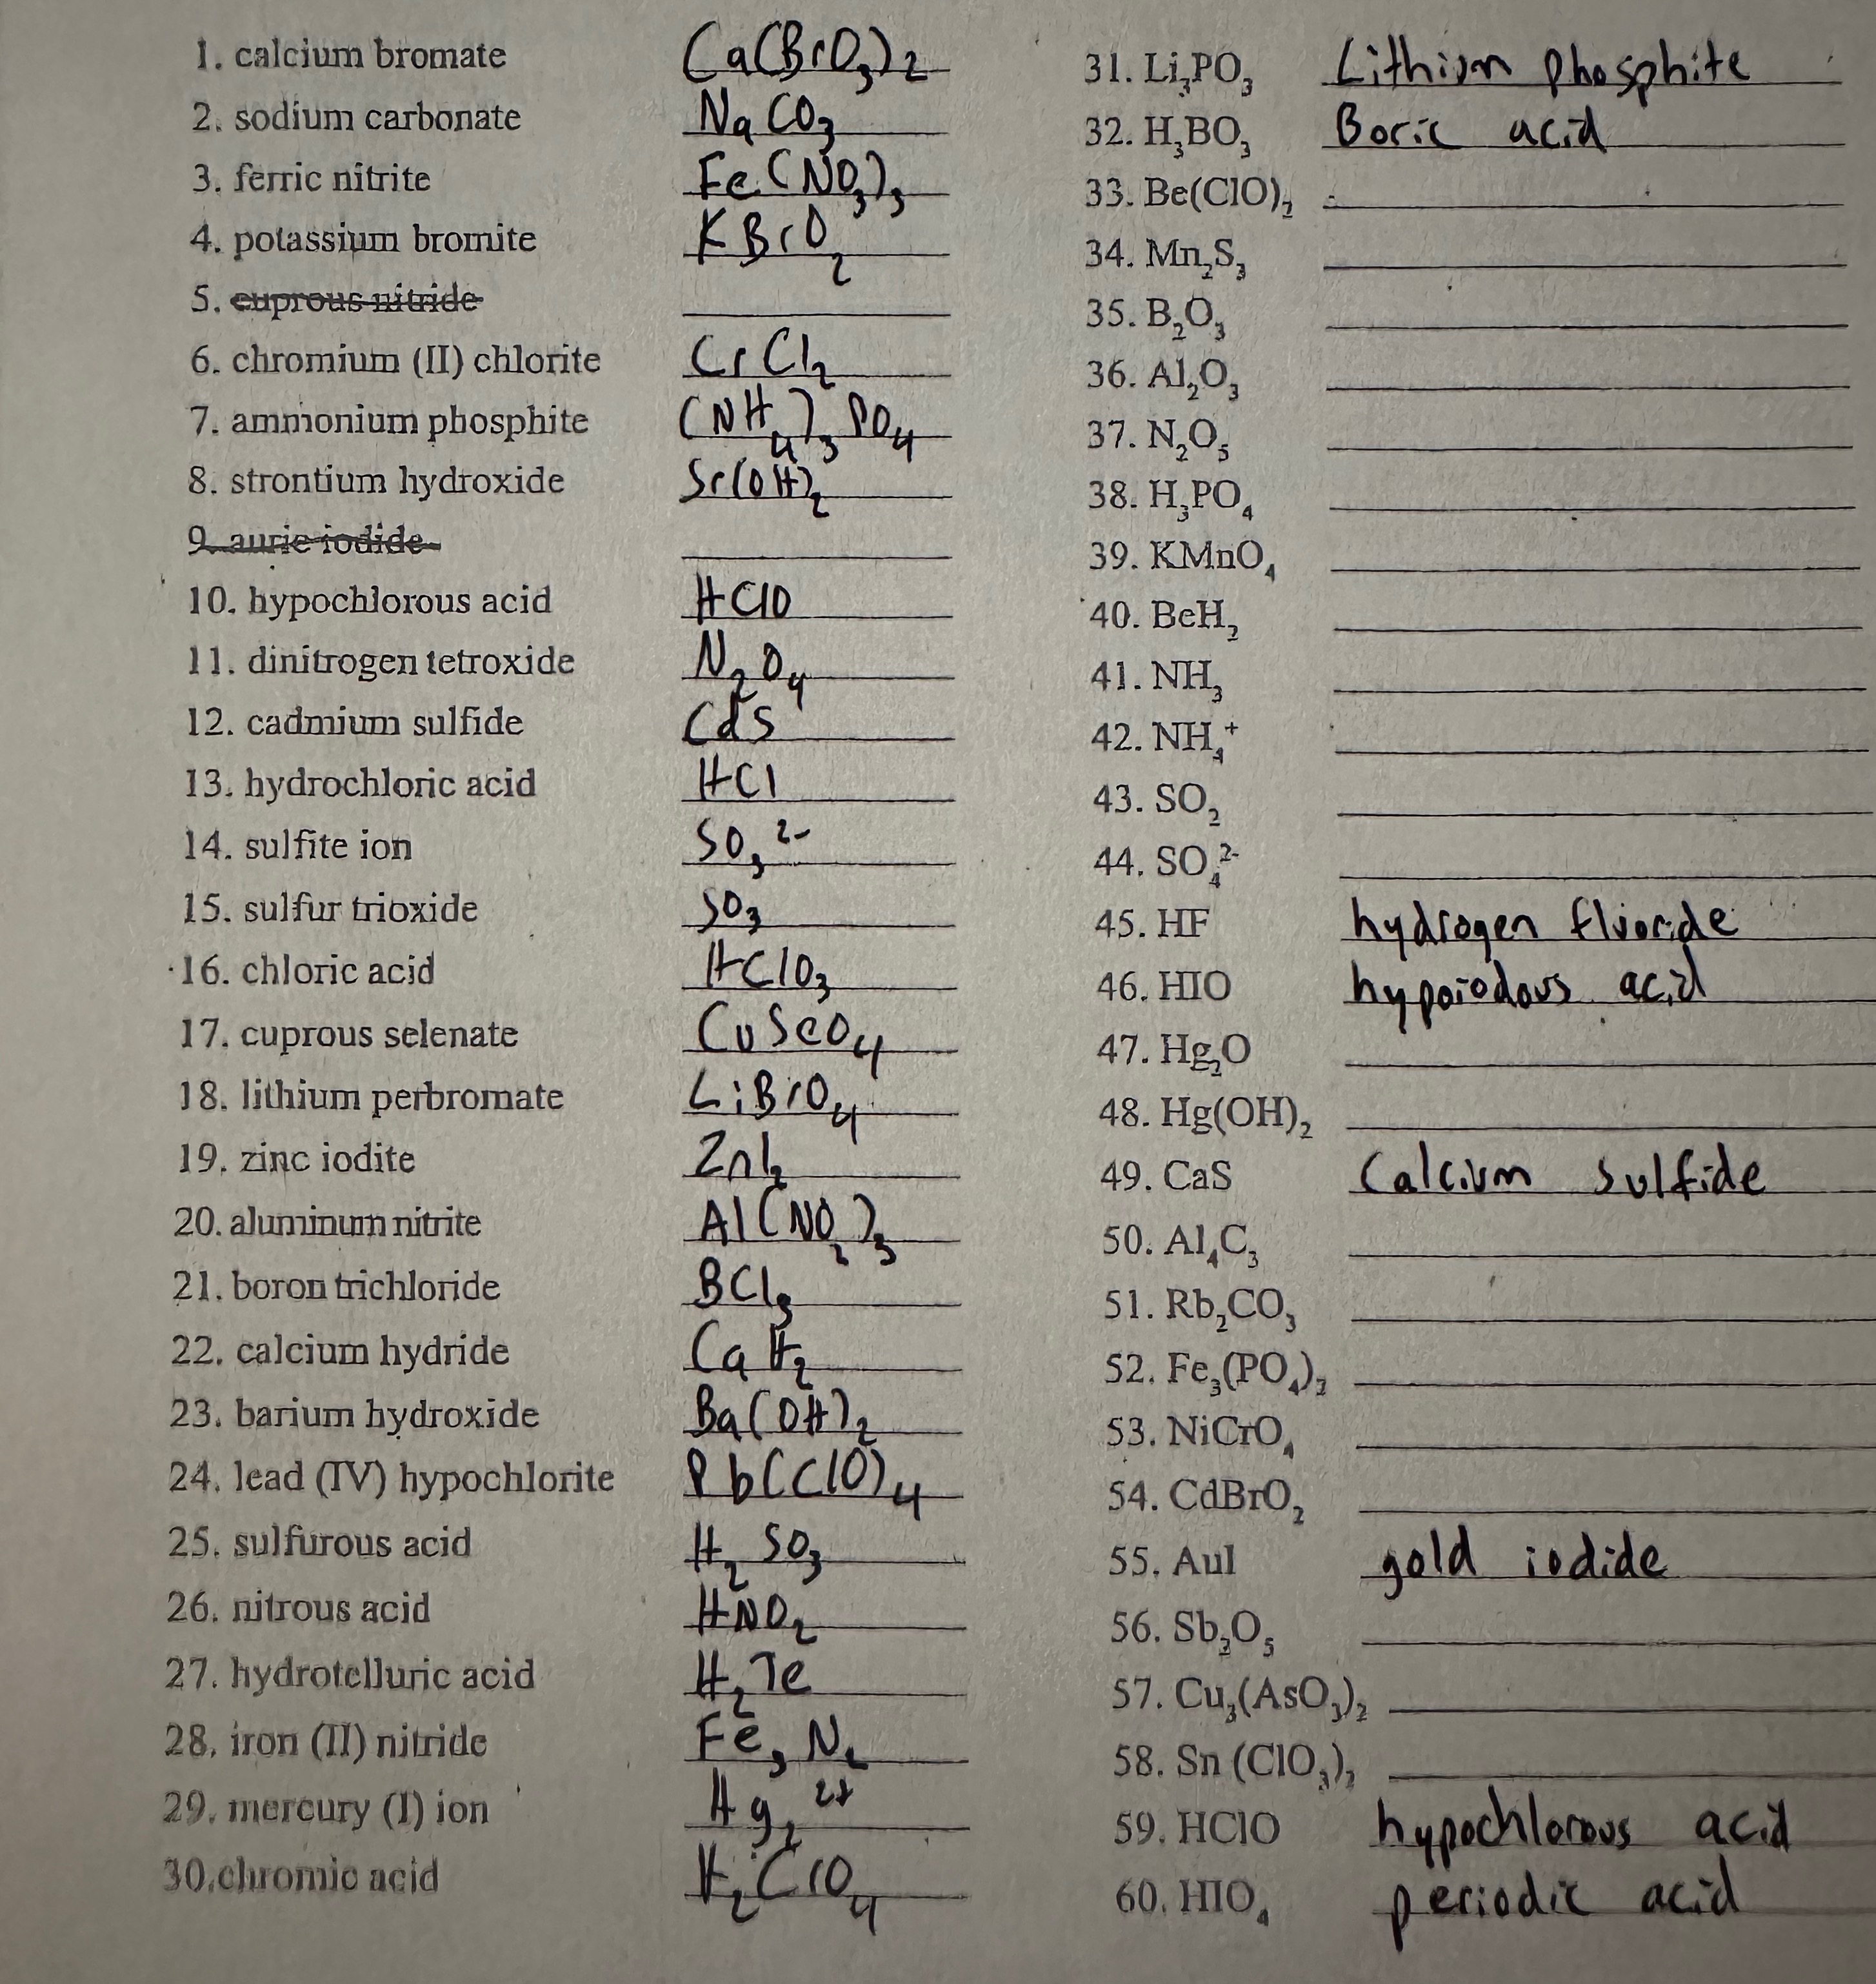 1. calcium bromate Ca(BrO₃)₂
2. sodium carbonate NaCO₃
3. ferric nitrite Fe(NO₃)₃
4. potassium bromite KBrO₂
5. cuprous nitride
6. chromium (II) chlorite CrCl₂
7. ammonium phosphite (NH₄)₃PO₄
8. strontium hydroxide Sr(OH)₂
9. auric iodide
10. hypochlorous acid HClO
11. dinitrogen tetroxide N₂O₄
12. cadmium sulfide CdS
13. hydrochloric acid HCl
14. sulfite ion SO₃²⁻
15. sulfur trioxide SO₃
16. chloric acid HClO₃
17. cuprous selenate CuSeO₄
18. lithium perbromate LiBrO₄
19. zinc iodite ZnI₂
20. aluminum nitrite Al(NO₂)₃
21. boron trichloride BCl₃
22. calcium hydride CaH₂
23. barium hydroxide Ba(OH)₂
24. lead (IV) hypochlorite Pb(ClO)₄
25. sulfurous acid H₂SO₃
26. nitrous acid HNO₂
27. hydrotelluric acid H₂Te
28. iron (II) nitride Fe₃N₂
29. mercury (I) ion Hg₂²⁺
30. chromic acid H₂CrO₄
31. Li₃PO₃ Lithium phosphite
32. H₃BO₃ Boric acid
33. Be(ClO)₂
34. Mn₂S₃
35. B₂O₃
36. Al₂O₃
37. N₂O₅
38. H₃PO₄
39. KMnO₄
40. BeH₂
41. NH₃
42. NH₄⁺
43. SO₂
44. SO₄²⁻
45. HF hydrogen fluoride
46. HIO hypoiodous acid
47. Hg₂O
48. Hg(OH)₂
49. CaS Calcium sulfide
50. Al₄C₃
51. Rb₂CO₃
52. Fe₃(PO₄)₂
53. NiCrO₄
54. CdBrO₂
55. AuI gold iodide
56. Sb₂O₅
57. Cu₃(AsO₃)₂
58. Sn (ClO₃)₂
59. HClO hypochlorous acid
60. HIO₄ periodic acid